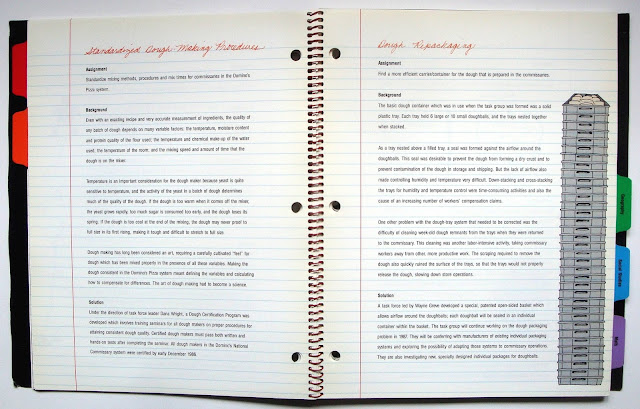 Standardized Dough Making Procedures
Assignment
Standardize mixing methods, procedures and mix times for commissaries in the Domino's
Pizza system.
Background
Even with an existing recipe and very accurate measurement of ingredients, the quality of
any batch of dough depends on many variable factors: the temperature, moisture content
and protein quality of the flour used; the temperature and chemical make-up of the water
used; the temperature of the room; and the mixing speed and amount of time that the
dough is on the mixer.
Temperature is an important consideration for the dough maker because yeast is quite
sensitive to temperature, and the activity of the yeast in a batch of dough determines
much of the quality of the dough. If the dough is too warm when it comes off the mixer,
the yeast grows rapidly, too much sugar is consumed too early, and the dough loses its
spring. If the dough is too cool at the end of the mixing, the dough may never proof to
full size in its first rising, making it tough and difficult to stretch to full size.
Dough making has long been considered an art, requiring a carefully cultivated "feel" for
dough which has been mixed properly in the presence of all those variables. Making the
dough consistent in the Domino's Pizza system meant defining the variables and calculating
how to compensate for differences. The art of dough making had to become a science.
Solution
Under the direction of task force leader Wright, a Dough Certification Program was
developed which involves training seminars for all dough makers on proper procedures for
attaining consistent dough quality. Certified dough makers must pass both written and
hands-on tests after completing the seminar. All dough makers in the Domino's National
Commissary system were certified by early December 1986.
Dough Repackaging
Assignment
Find a more efficient carrier/container for the dough that is prepared in the commissaries.
Background
The basic dough container which was in use when the task group was formed was a solid
plastic tray. Each tray held 6 large or 10 small doughballs, and the trays nested together
when stacked.
As a tray nested above a filled tray, a seal was formed against the airflow around the
doughballs. This seal was desirable to prevent the dough from forming a dry crust and to
prevent contamination of the dough in storage and shipping. But the lack of airflow also
made controlling humidity and temperature very difficult. Down-stacking and cross-stacking
the trays for humidity and temperature control were time-consuming activities and also the
cause of an increasing number of workers' compensation claims.
One other problem with the dough-tray system that needed to be corrected was the
difficulty of cleaning week-old dough remnants from the trays when they were returned
to the commissary. This cleaning was another labor-intensive activity, taking commissary
workers away from other, more productive work. The scraping required to remove the
dough also quickly ruined the surface of the trays, so that the trays would not properly
release the dough, slowing down store operations.
Solution
A task force led by Wayne Grew developed a special, patented open-sided basket which
allows airflow around the doughballs; each doughball will be sealed in an individual
container within the basket. The task group will continue working on the dough packaging
problem in 1987. They will be conferring with manufacturers of existing individual packaging
systems and exploring the possibility of adapting those systems to commissary operations.
They are also investigating new, specially designed individual packages for doughballs.
Geography
Social Studies
Math